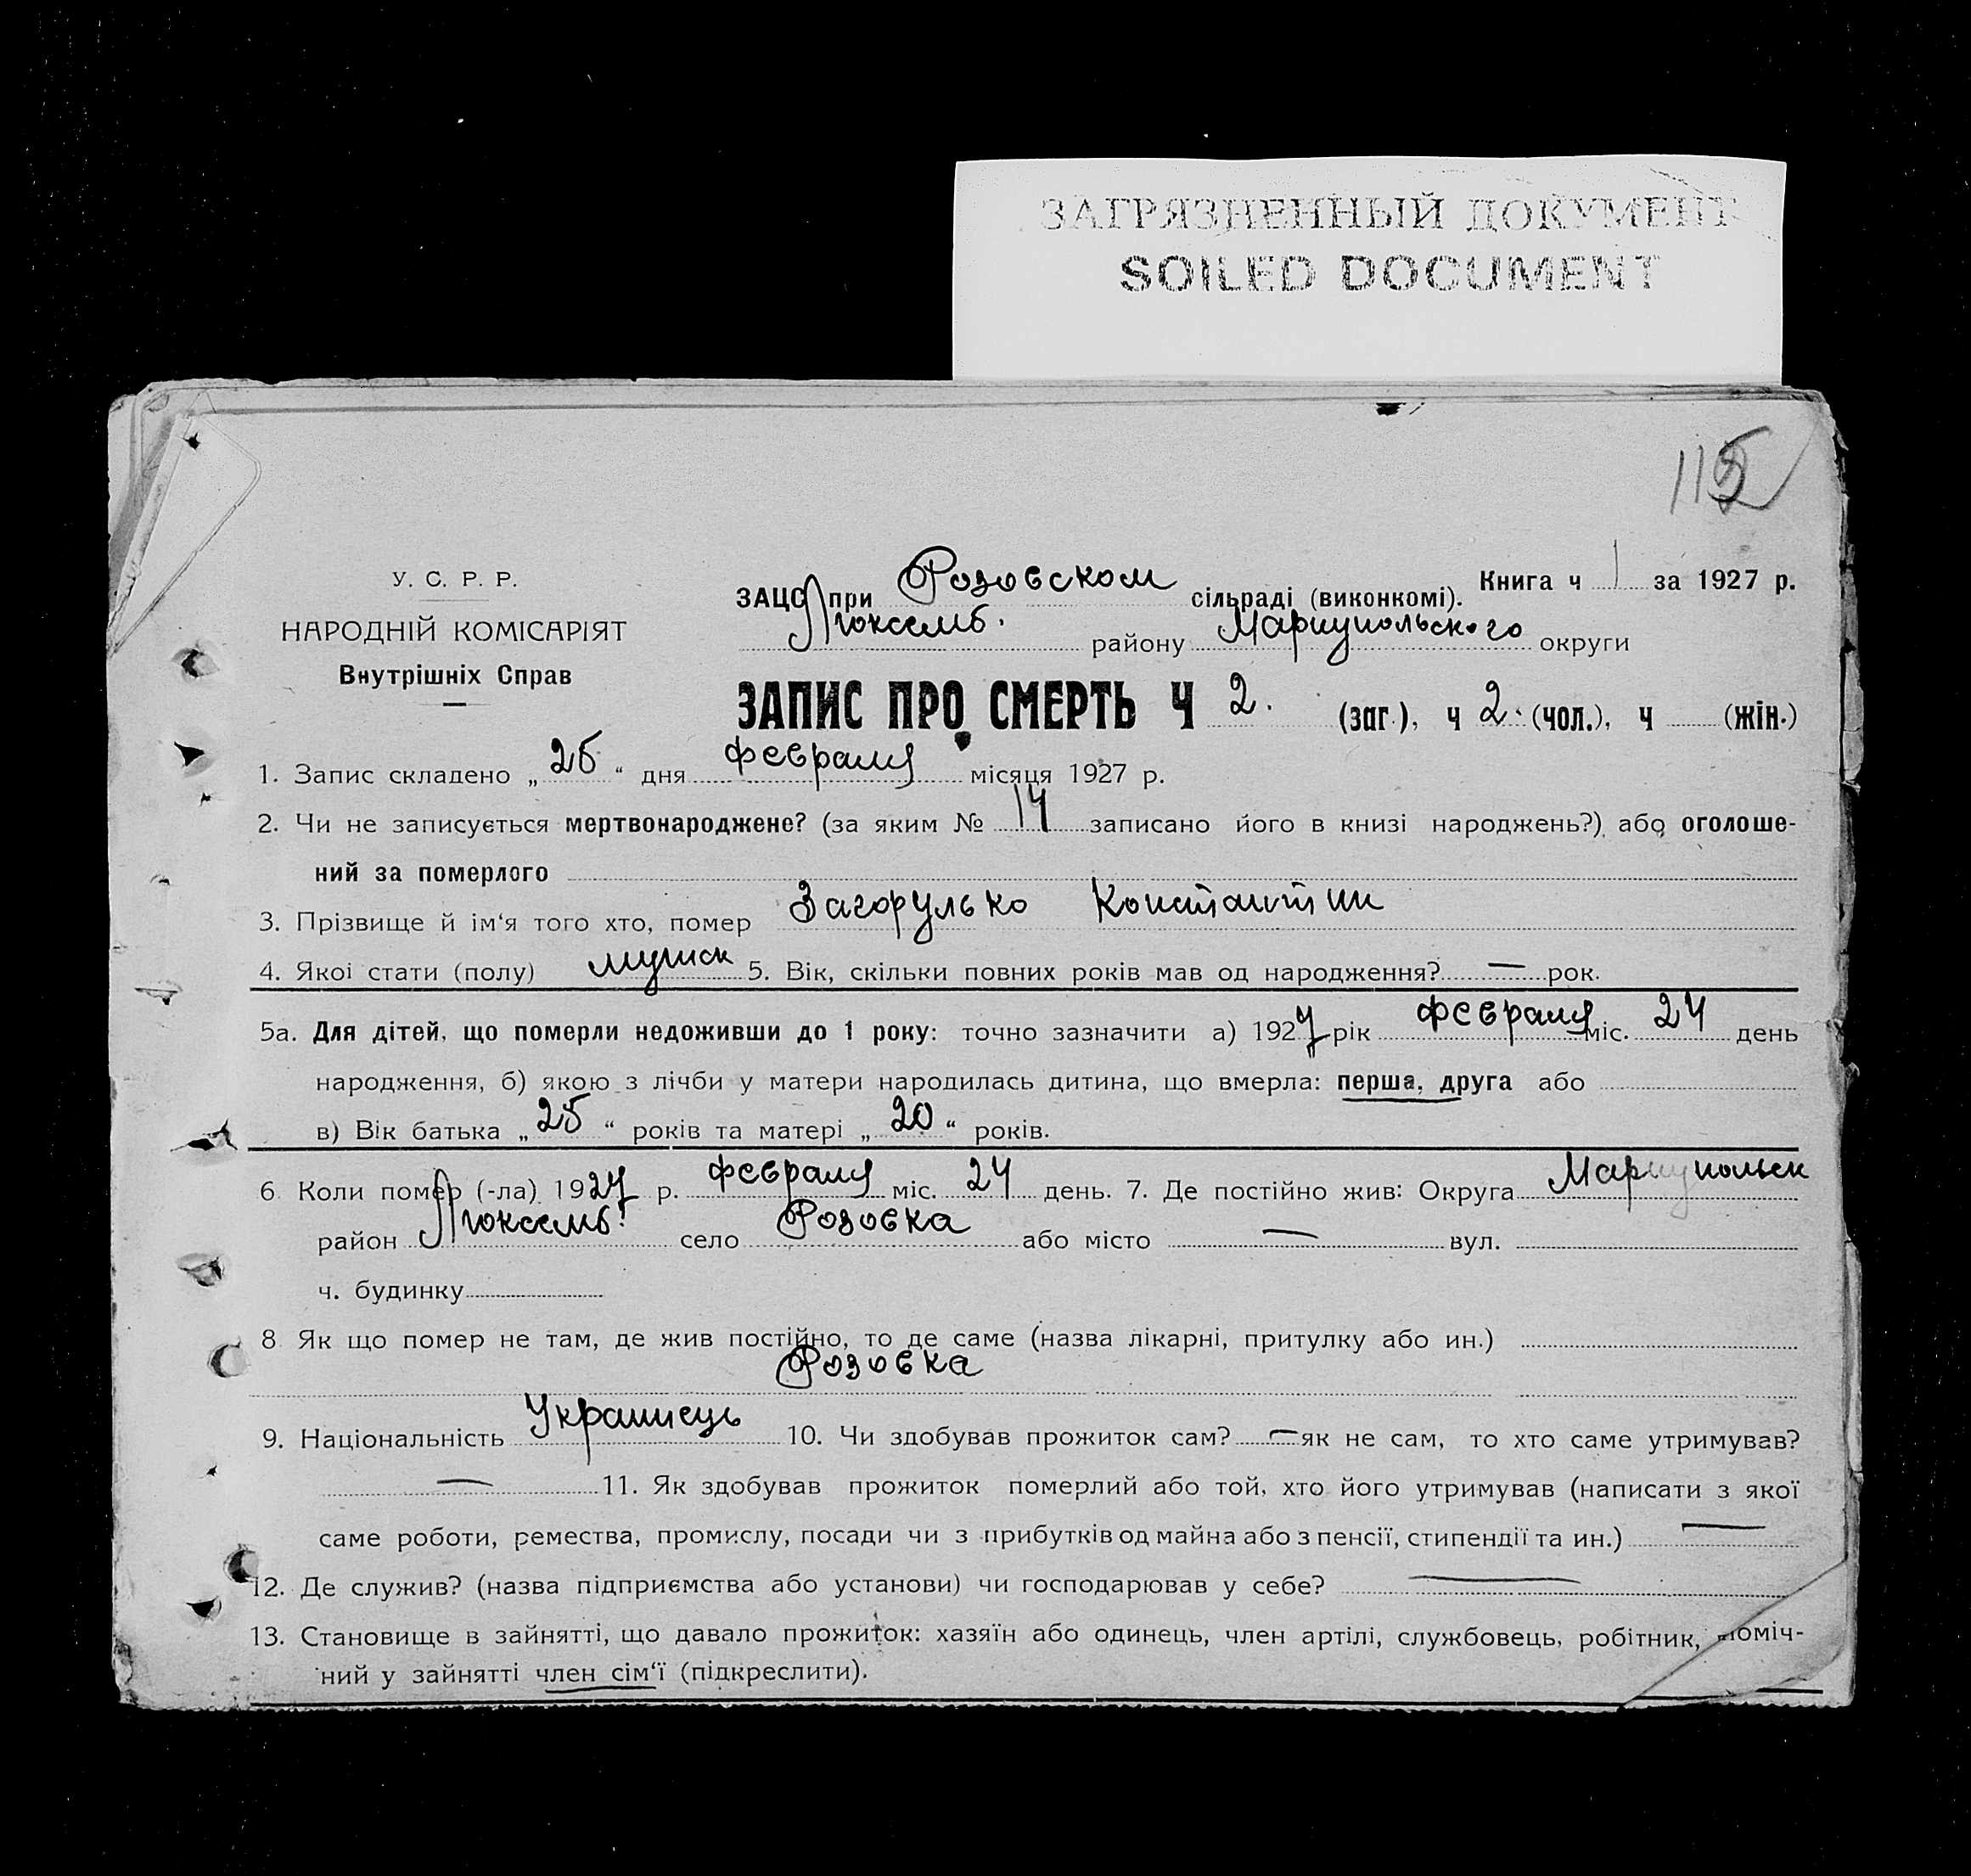 ЗАГРЯЗНЕННЫЙ ДОКУМЕНТ
SOILED DOCUMENT
115
У. С. Р. Р.
НАРОДНІЙ КОМІСАРІЯТ
Внутрішніх Справ
ЗАЦС при Розовском сільраді (виконкомі). Книга ч 1 за 1927 р.
Люксемб. району Мариупольского округи
ЗАПИС ПРО СМЕРТЬ Ч 2. (заг.), ч 2. (чол.), ч (жін.)
1. Запис складено „ 26 “ дня февраля місяця 1927 р.
2. Чи не записується мертвонароджене? (за яким № 14 записано його в книзі народжень?) або оголоше-
ний за померлого
3. Прізвище й ім‘я того хто, помер Загорулько Константин
4. Якоі стати (полу) мужск 5. Вік, скільки повних років мав од народження? — рок.
5а. Для дітей, що померли недоживши до 1 року: точно зазначити а) 1927 рік февраля міс. 24 день
народження, б) якою з лічби у матери народилась дитина, що вмерла: перша, друга або
в) Вік батька „ 25 “ років та матері „ 20 “ років.
6. Коли помер (-ла) 1927 р. февраля міс. 24 день. 7. Де постійно жив: Округа Мариупольск
район Люксемб. село Розовка або місто — вул.
ч. будинку
8. Як що помер не там, де жив постійно, то де саме (назва лікарні, притулку або ин.)
Розовка
9. Національність Украинець 10. Чи здобував прожиток сам? — як не сам, то хто саме утримував?
— 11. Як здобував прожиток померлий або той, хто його утримував (написати з якої
саме роботи, ремества, промислу, посади чи з прибутків од майна або з пенсії, стипендії та ин.) —
12. Де служив? (назва підприємства або установи) чи господарював у себе? —
13. Становище в зайнятті, що давало прожиток: хазяїн або одинець, член артілі, службовець, робітник, поміч-
ний у зайнятті член сім‘ї (підкреслити).